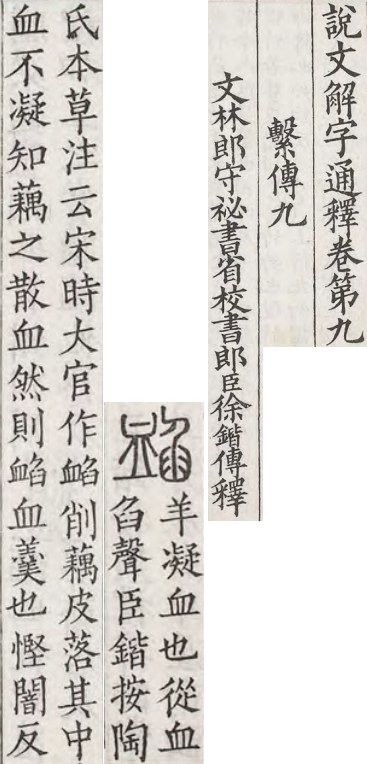 說文解字通釋卷第九
繫傳九
文林郎守祕書省校書郎臣徐鍇傳釋
䘓
羊凝血也從血
臽聲臣鍇按陶
氏本草注云宋時大官作䘓削藕皮落其中
血不凝知藕之散血然則䘓血羹也慳闇反